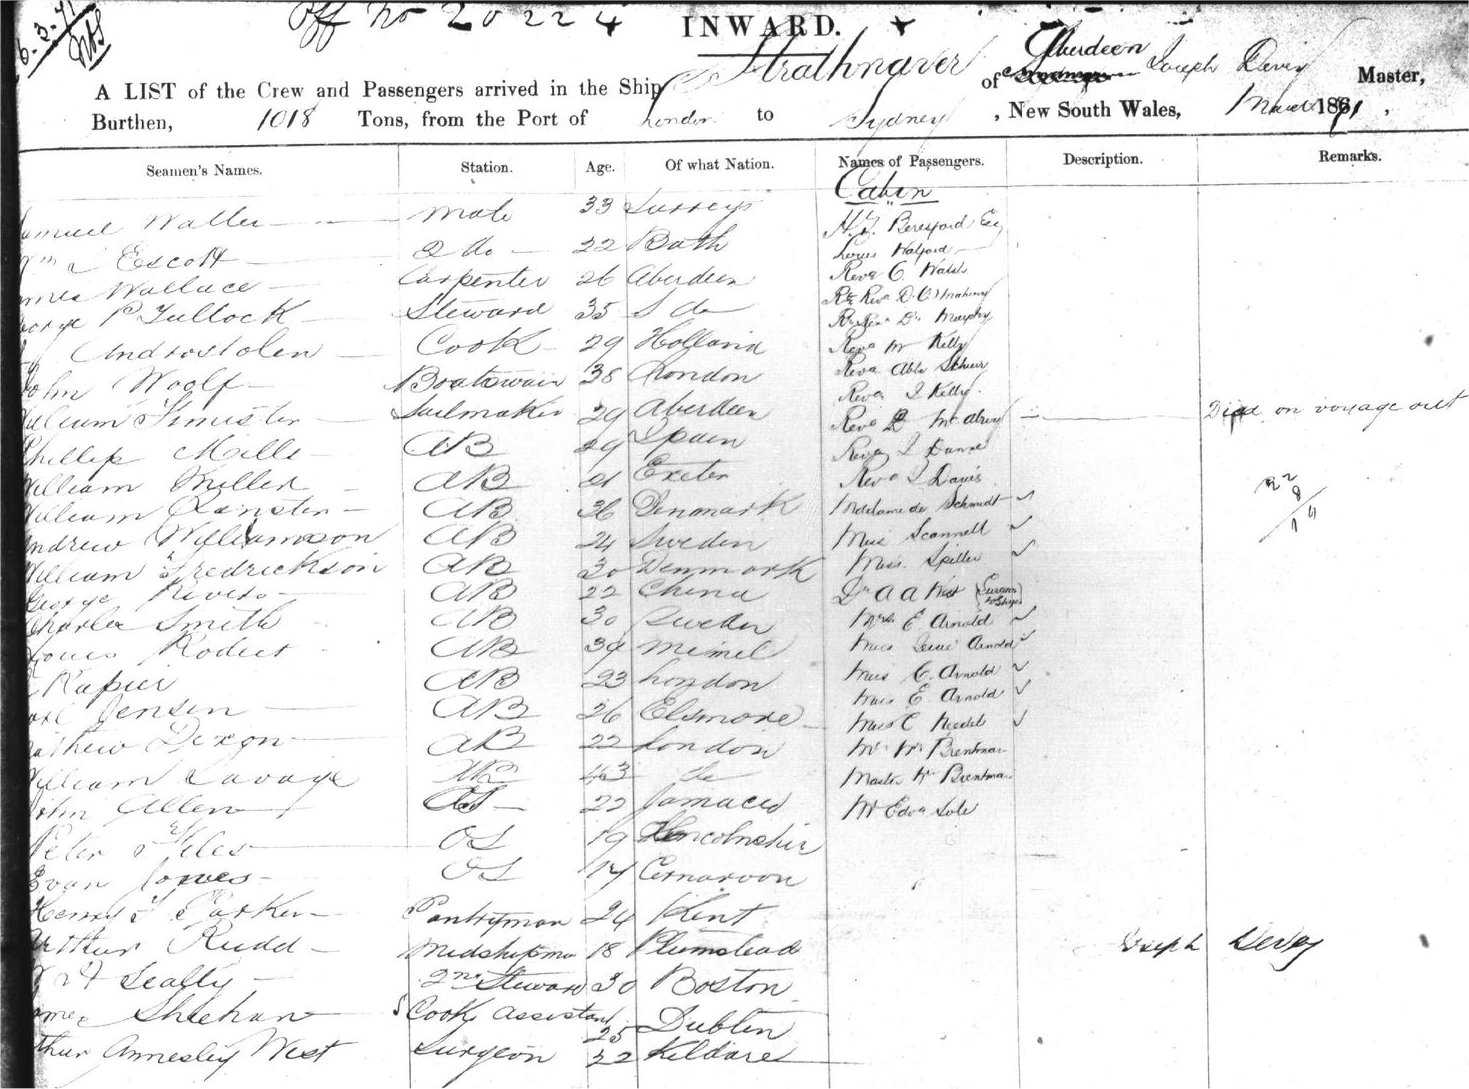 6.3.71
Off No 20224
INWARD.
A LIST of the Crew and Passengers arrived in the Ship Strathnaver of Aberdeen Joseph Devey Master,
Burthen, 1018 Tons, from the Port of London to Sydney, New South Wales, March 1871,
Seamen's Names. Station. Age. Of what Nation. Names of Passengers. Description. Remarks.
Cabin
Samuel Waller Mate 33 Surrey H. Beresford Esq
Escott 2 do 22 Bath Louis Halford
James Wallace Carpenter 26 Aberdeen Revd C. Walsh
George P Tullock Steward 35 do Rt Revd Dr O'Mahony
Androstolen Cook 29 Holland Dr Murphy
John Woolf Boatswain 38 London Revd M Kelly
William Sailmaker 29 Aberdeen Revd Abbe
Phillip Mills AB 29 Spain Revd J Kelly
William Miller AB 21 Exeter Revd Died on voyage out
William AB 36 Denmark Revd J
Andrew Williamson AB 24 Sweden Revd J Davis
William Fredrickson AB 30 Denmark Schmidt
George Rivers AB 22 China Miss Scannell
Charles Smith AB 30 Sweden Miss Spiller
Louis Robert AB 39 Mimel Dr A A West Surgeon
Rapier AB 23 London Mrs E Arnold
Jensen AB 26 Elsmore Miss Arnold
Mathew Dixon AB 22 London Miss C. Arnold
William Savage AB 43 do Miss E Arnold
John Allen 22 Jamaced Miss C
Peter OS 19 Lincolnshir Mr Wm Brentnall
Evan Jones OS 17 Cernarvon Master H Brentnall
Henry Parker Pantryman 24 Kent Mr Edwd Sole
Arthur Rudd Midshipman 18 Plumstead Joseph Devey
Scally 2nd Steward 30 Boston
James Sheehan Cooks Assistant 25 Dublin
Arthur Annesley West Surgeon 32 Kildare